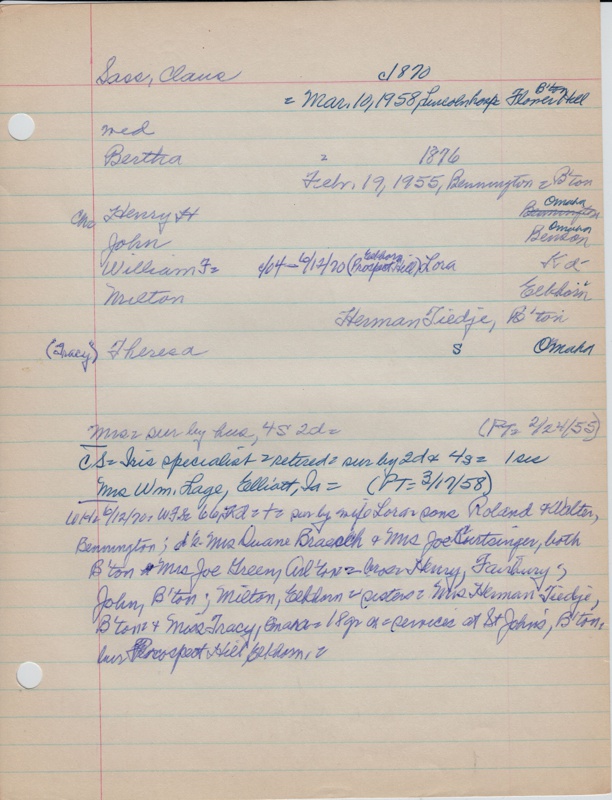 Sass, Claus c1870
= Mar. 10, 1958, Lincolnhosp= Flower Hill B'ton
med
Bertha = 1876
Febr. 19, 1955, Bennington = B'ton
Ch= Henry H Bennington Omaha
John Benson Omaha
William F= c/04 - 6/12/70 (Elkhorn Prospect Hill) Lora Kd
Milton Elkhorn
Herman Tiedje, B'ton
(Tracy) Theresa S Omaha
Mrs= sur by hus, 4S 2d= (PT= 2/24/55)
CS= Iris specialist = retired = sur by 2d & 4s = 1 sis
Mrs Wm. Lage, Elliott, Ia = (PT= 3/17/58)
6/12/70= WFS= 66, = sur by wife Lora = sons Roland & Walter,
Bennington; d's= Mrs Duane Braesch & Mrs Joe both
B'ton & Mrs Joe Green, Arl'ton = bros= Henry, Fairbury;
John, B'ton; Milton, Elkhorn = sisters= Mrs Herman Tiedje,
B'ton= & Miss Tracy, Omaha= 18gr = services at St John's, B'ton=
bur Prospect Hill Elkhorn. =